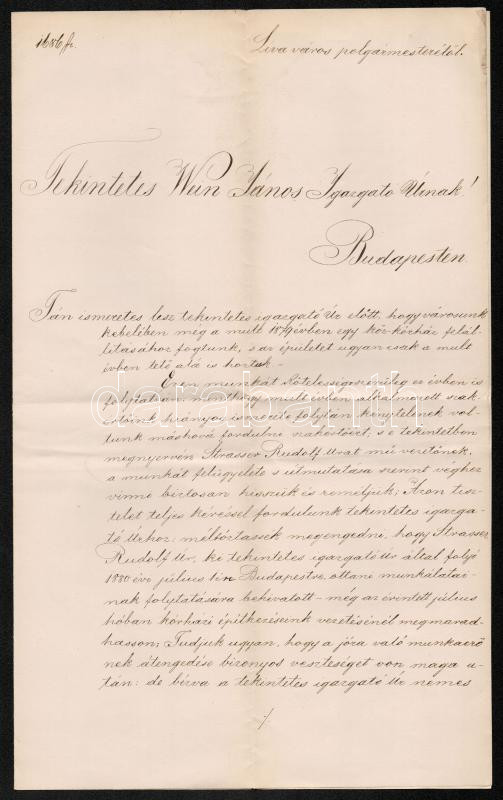 1686/fr.
Léva város polgármesterétől.
Tekintetes Wein János Igazgató Úrnak!
Budapesten
Tán ismeretes lesz tekintetes igazgató Úr előtt, hogy városunk
kebelében még a mult 1879 évben egy kór-kórház felál-
litásához fogtunk, s az épületet ugyan csak a mult
évben tető alá is hoztuk.-
Ezen munkát kötelességszerüleg ez évben is
folytatván, minthogy mult évben alkalmazott szak-
értőink hiányos ismerete folytán kénytelenek vol-
tunk máshová fordulni szakértőért, s e tekintetben
megnyervén Strasser Rudolf Urat mű vezetőnek,
a munkát felügyelete s útmutatása szerint véghez
vinni biztosan hisszük és reméljük; Azon tisz-
telet teljes kéréssel fordulunk tekintetes igazga-
tó Úrhoz: méltóztassék megengedni, hogy Strasser
Rudolf Úr, ki tekintetes igazgató Úr által folyó
1880 évi július 1én Budapestre, ottani munkálatai-
nak folytatására behivatott - még az érintett július
hóban kórházi építkezéseink vezetésénél megmarad-
hasson; Tudjuk ugyan, hogy a jóra való munkaerő
nek átengedése bizonyos veszteséget von maga u-
tán: de bízva a tekintetes igazgató Úr nemes
./.
darabanth.com